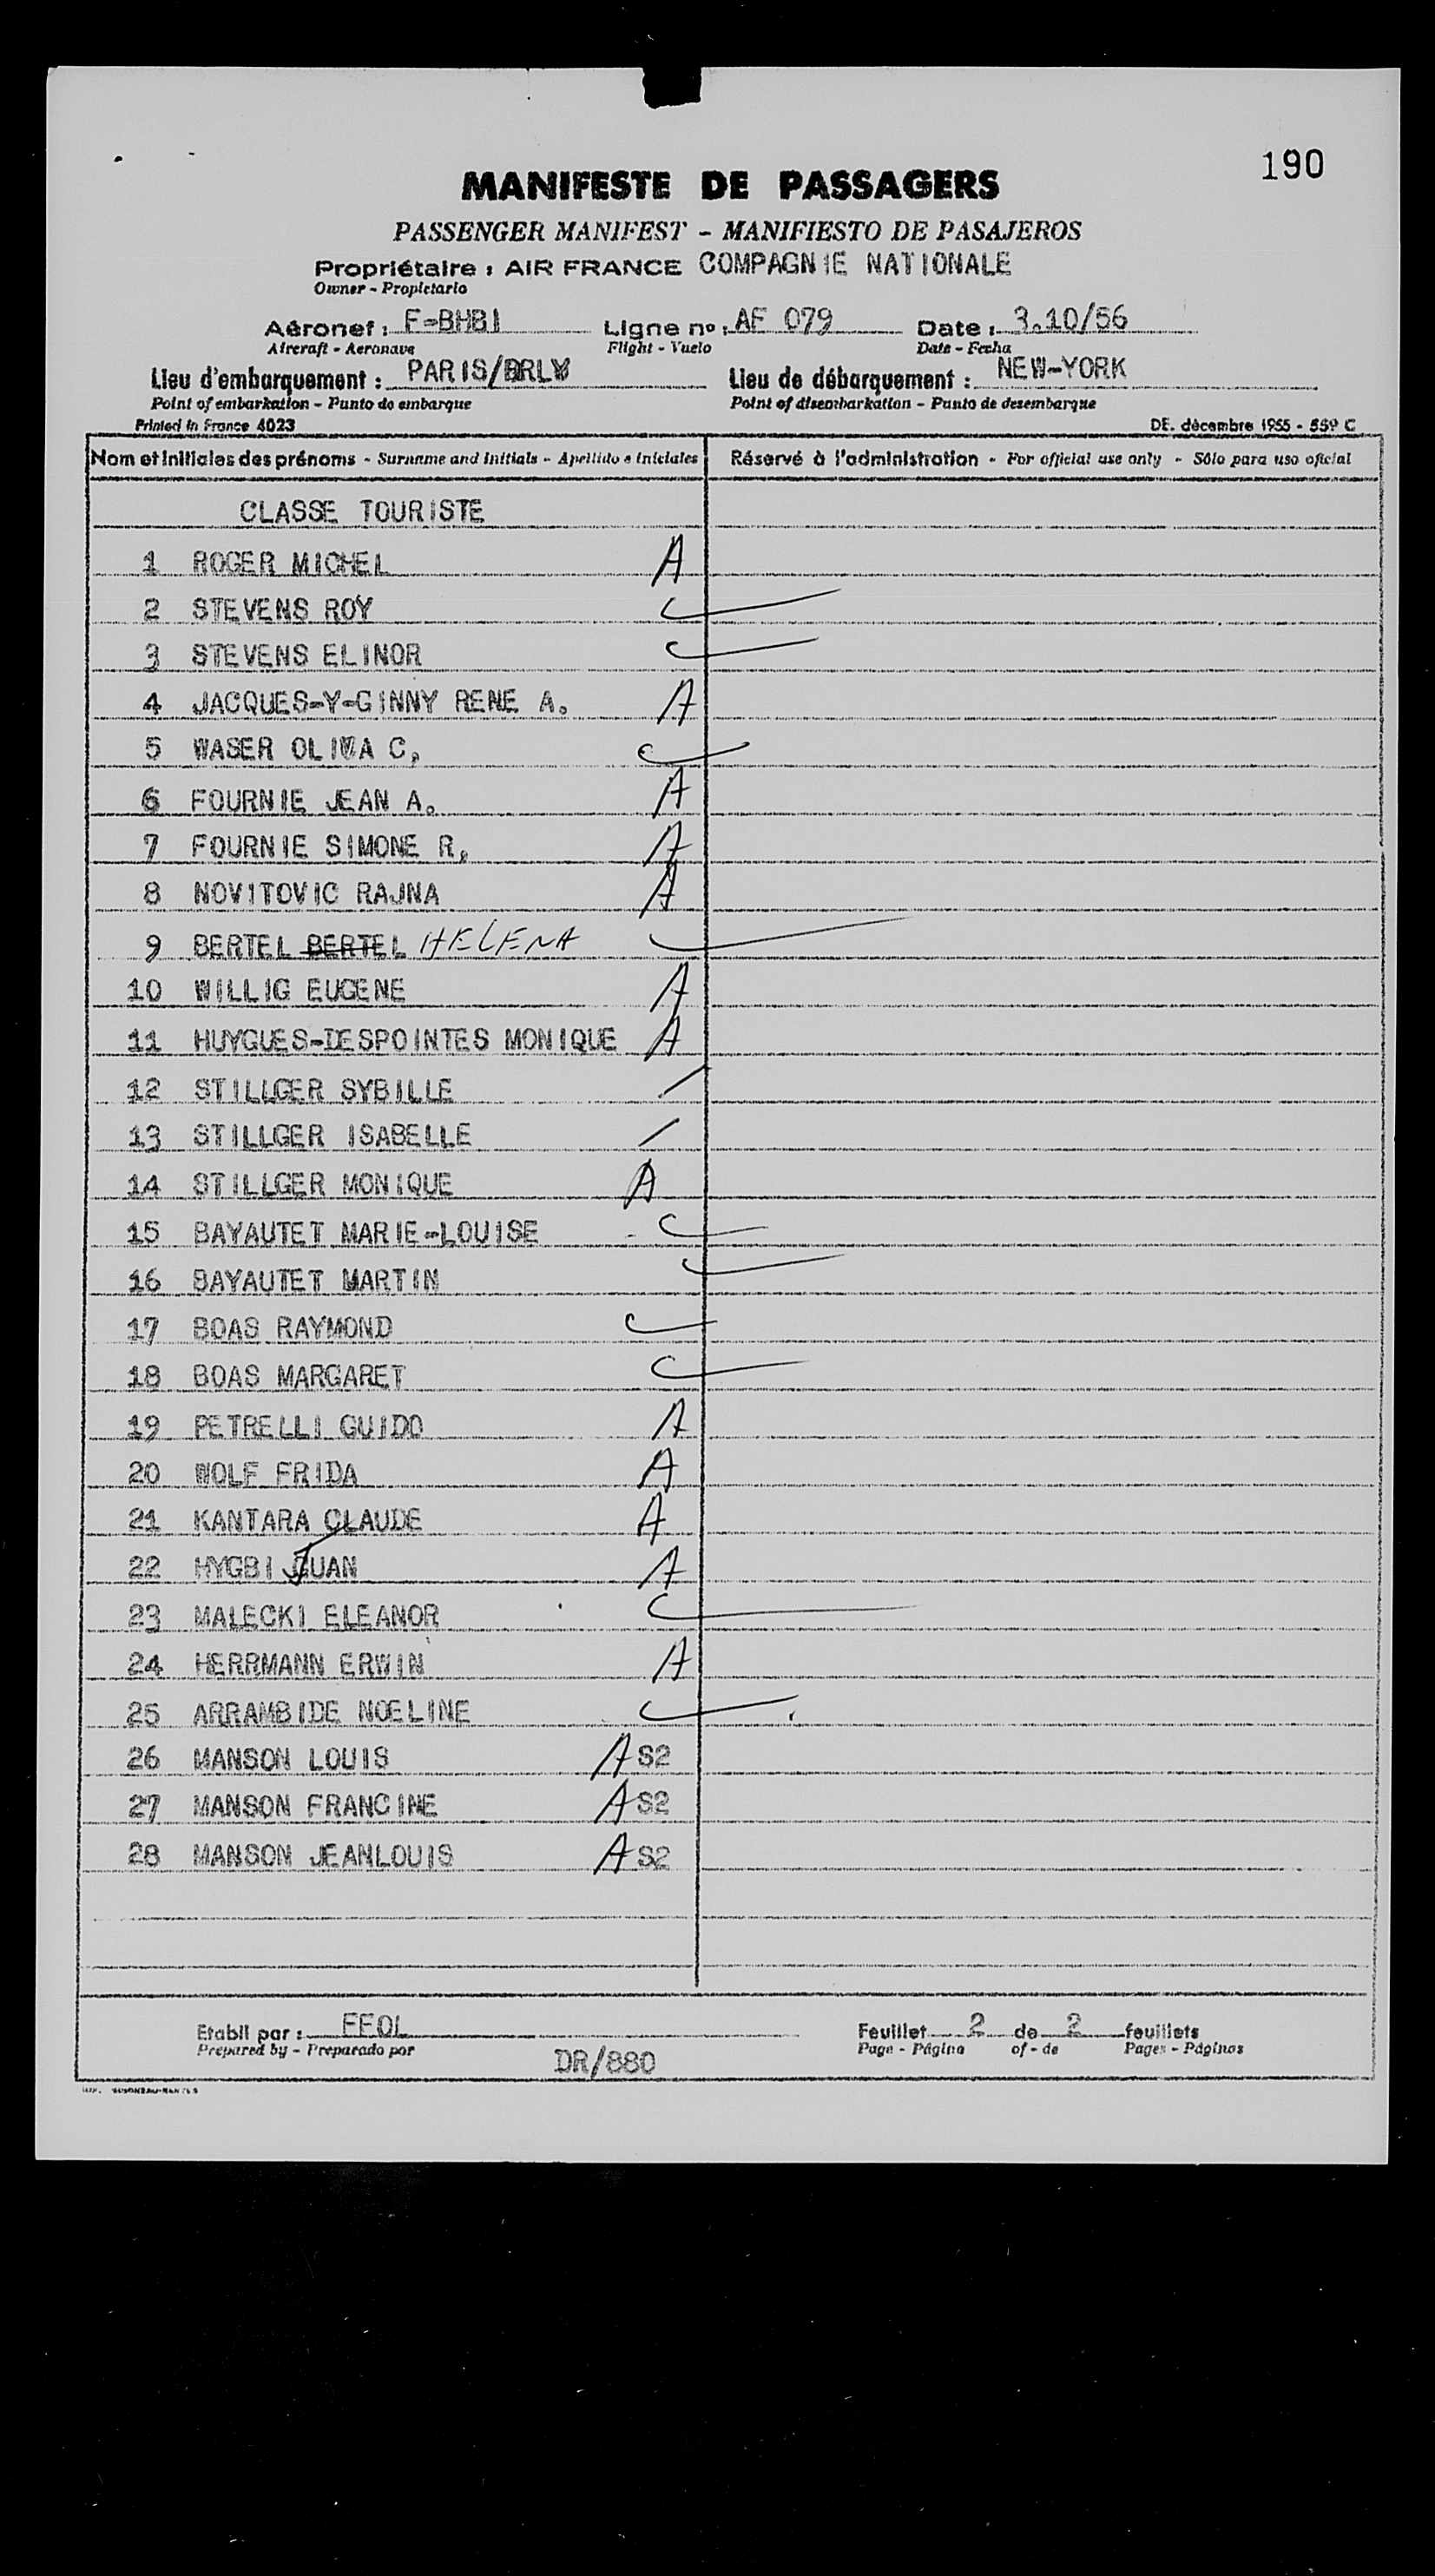 190
MANIFESTE DE PASSAGERS
PASSENGER MANIFEST - MANIFIESTO DE PASAJEROS
Propriétaire : AIR FRANCE COMPAGNIE NATIONALE
Owner - Propietario
Aéronef : F-BHBI Ligne nº : AF 079 Date : 3.10/56
Aircraft - Aeronave Flight - Vuelo Date - Fecha
Lieu d'embarquement : PARIS/ORLY Lieu de débarquement : NEW-YORK
Point of embarkation - Punto de embarque Point of disembarkation - Punto de desembarque
Printed in France 4023 DE. décembre 1955 - 559 C
Nom et initiales des prénoms - Surname and initials - Apellido e iniciales Réservé à l'administration - For official use only - Sólo para uso oficial
CLASSE TOURISTE
1 ROGER MICHEL A
2 STEVENS ROY
3 STEVENS ELINOR
4 JACQUES-Y-GINNY RENE A. A
5 WASER OLIVA C.
6 FOURNIE JEAN A. A
7 FOURNIE SIMONE R. A
8 NOVITOVIC RAJNA A
9 BERTEL BERTEL HELENA
10 WILLIG EUGENE A
11 HUYGUES-DESPOINTES MONIQUE A
12 STILLGER SYBILLE
13 STILLGER ISABELLE
14 STILLGER MONIQUE A
15 BAYAUTET MARIE-LOUISE
16 BAYAUTET MARTIN
17 BOAS RAYMOND
18 BOAS MARGARET
19 PETRELLI GUIDO A
20 WOLF FRIDA A
21 KANTARA CLAUDE A
22 HYGBI JUAN A
23 MALECKI ELEANOR
24 HERRMANN ERWIN A
25 ARRAMBIDE NOELINE
26 MANSON LOUIS A S2
27 MANSON FRANCINE A S2
28 MANSON JEANLOUIS A S2
Etabli par : FFOL Feuillet 2 de 2 feuillets
Prepared by - Preparado por Page - Página of - de Pages - Páginas
DR/880